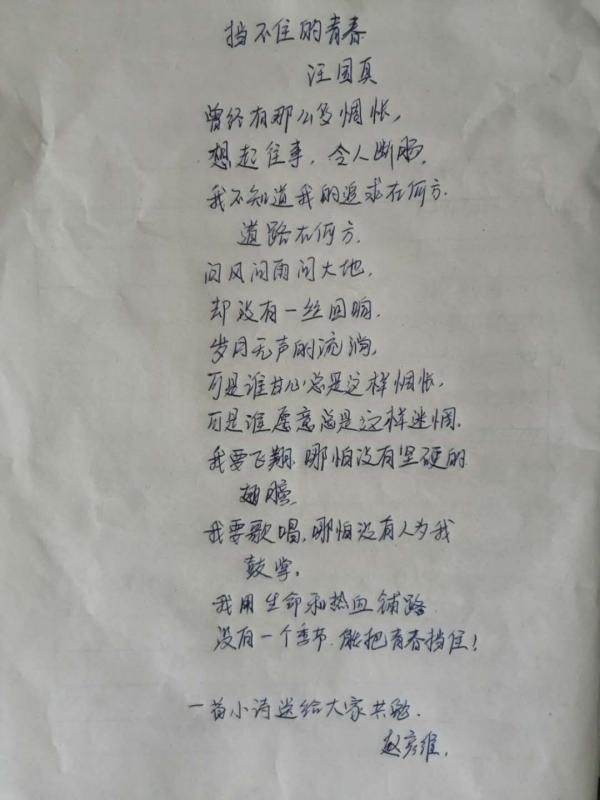 挡不住的青春
汪国真
曾经有那么多惆怅,
想起往事,令人断肠,
我不知道我的追求在何方.
道路在何方.
问风问雨问大地,
却没有一丝回响.
岁月无声的流淌,
可是谁甘心总是这样惆怅,
可是谁愿意总是这样迷惘.
我要飞翔.哪怕没有坚硬的
翅膀,
我要歌唱,哪怕没有人为我
鼓掌,
我用生命和热血铺路
没有一个季节.能把青春挡住!
一首小诗送给大家共勉.
赵彦维.